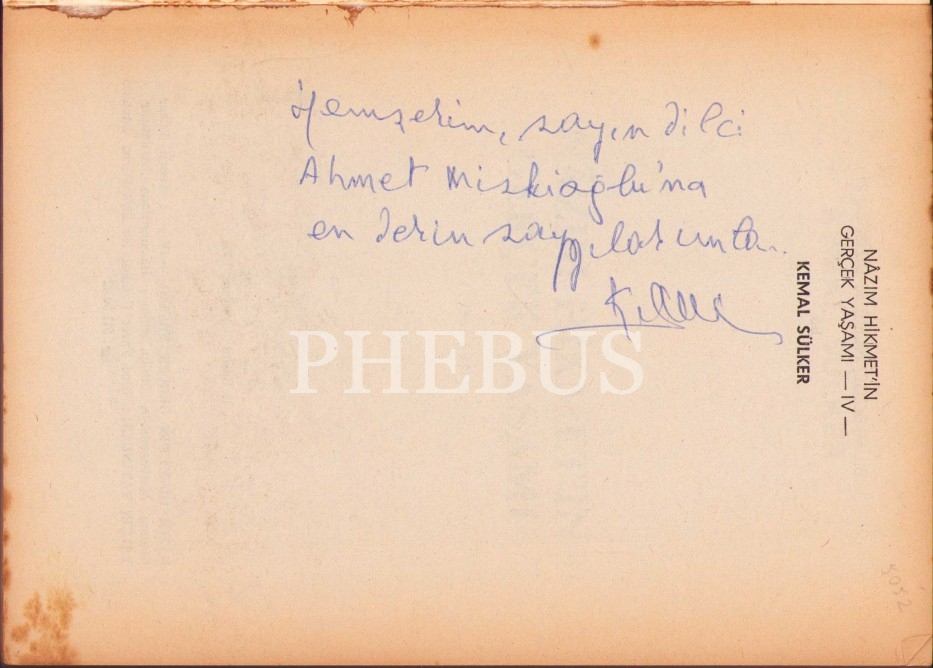 Hemşerim, sayın dilci
Ahmet Miskioğlu'na
en derin saygılarımla..
NÂZIM HİKMET'İN
GERÇEK YAŞAMI — IV —
KEMAL SÜLKER
PHEBUS